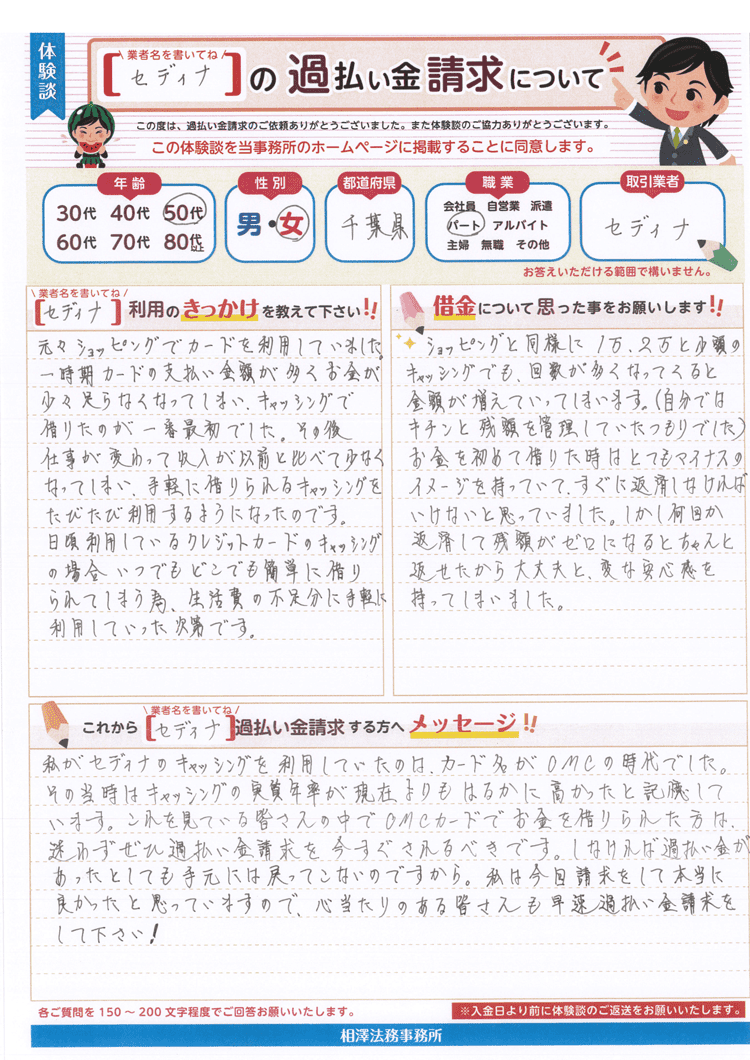 体験談
業者名を書いてね
[セディナ]の過払い金請求について
この度は、過払い金請求のご依頼ありがとうございました。また体験談のご協力ありがとうございます。
この体験談を当事務所のホームページに掲載することに同意します。
年齢
30代 40代 50代
60代 70代 80代以上
性別
男・女
都道府県
千葉県
職業
会社員 自営業 派遣
パート アルバイト
主婦 無職 その他
取引業者
セディナ
お答えいただける範囲で構いません。
業者名を書いてね
[セディナ]利用のきっかけを教えて下さい!!
元々ショッピングでカードを利用していました。
一時期カードの支払い金額が多くお金が
少々足らなくなってしまい、キャッシングで
借りたのが一番最初でした。その後
仕事が変わって収入が以前と比べて少なく
なってしまい、手軽に借りられるキャッシングを
たびたび利用するようになったのです。
日頃利用しているクレジットカードのキャッシング
の場合いつでもどこでも簡単に借り
られてしまう為、生活費の不足分に手軽に
利用していった次第です。
借金について思った事をお願いします!!
ショッピングと同様に1万、2万と少額の
キャッシングでも、回数が多くなってくると
金額が増えていってしまいます。(自分では
キチンと残額を管理していたつもりでした)
お金を初めて借りた時はとてもマイナスの
イメージを持っていて、すぐに返済しなければ
いけないと思っていました。しかし何回か
返済して残額がゼロになるとちゃんと
返せたから大丈夫と、変な安心感を
持ってしまいました。
業者名を書いてね
これから[セディナ]過払い金請求する方へメッセージ!!
私がセディナのキャッシングを利用していたのは、カード名がOMCの時代でした。
その当時はキャッシングの実質年率が現在よりもはるかに高かったと記憶して
います。これを見ている皆さんの中でOMCカードでお金を借りられた方は、
迷わずぜひ過払い金請求を今すぐされるべきです。しなければ過払い金が
あったとしても手元には戻ってこないのですから。私は今回請求をして本当に
良かったと思っていますので、心当たりのある皆さんも早速過払い金請求を
して下さい!
各ご質問を150〜200文字程度でご回答お願いいたします。
※入金日より前に体験談のご返送をお願いいたします。
相澤法務事務所